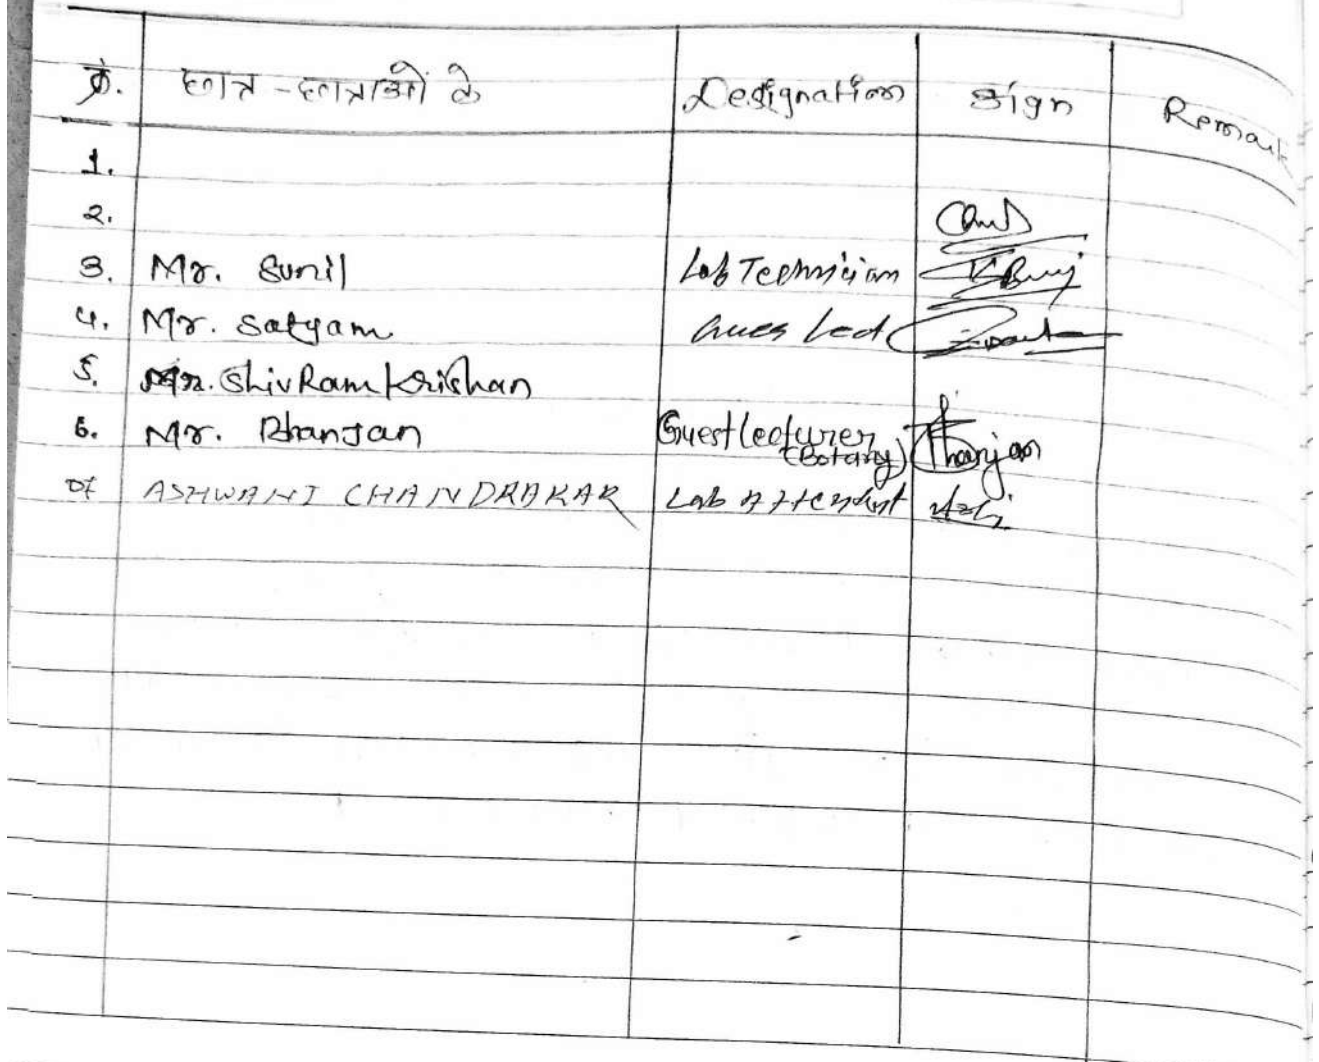 क्रं. छात्र-छात्राओं के Designation Sign Remark
1.
2.
3. Mr. Sunil Lab Technician
4. Mr. Satyam Gues Lect
5. Mr. Shiv Ram Krishan
6. Mr. Dhanjan Guest Lecturer (Botany) Dhanjan
07 ASHWANI CHANDRAKAR Lab Attendint